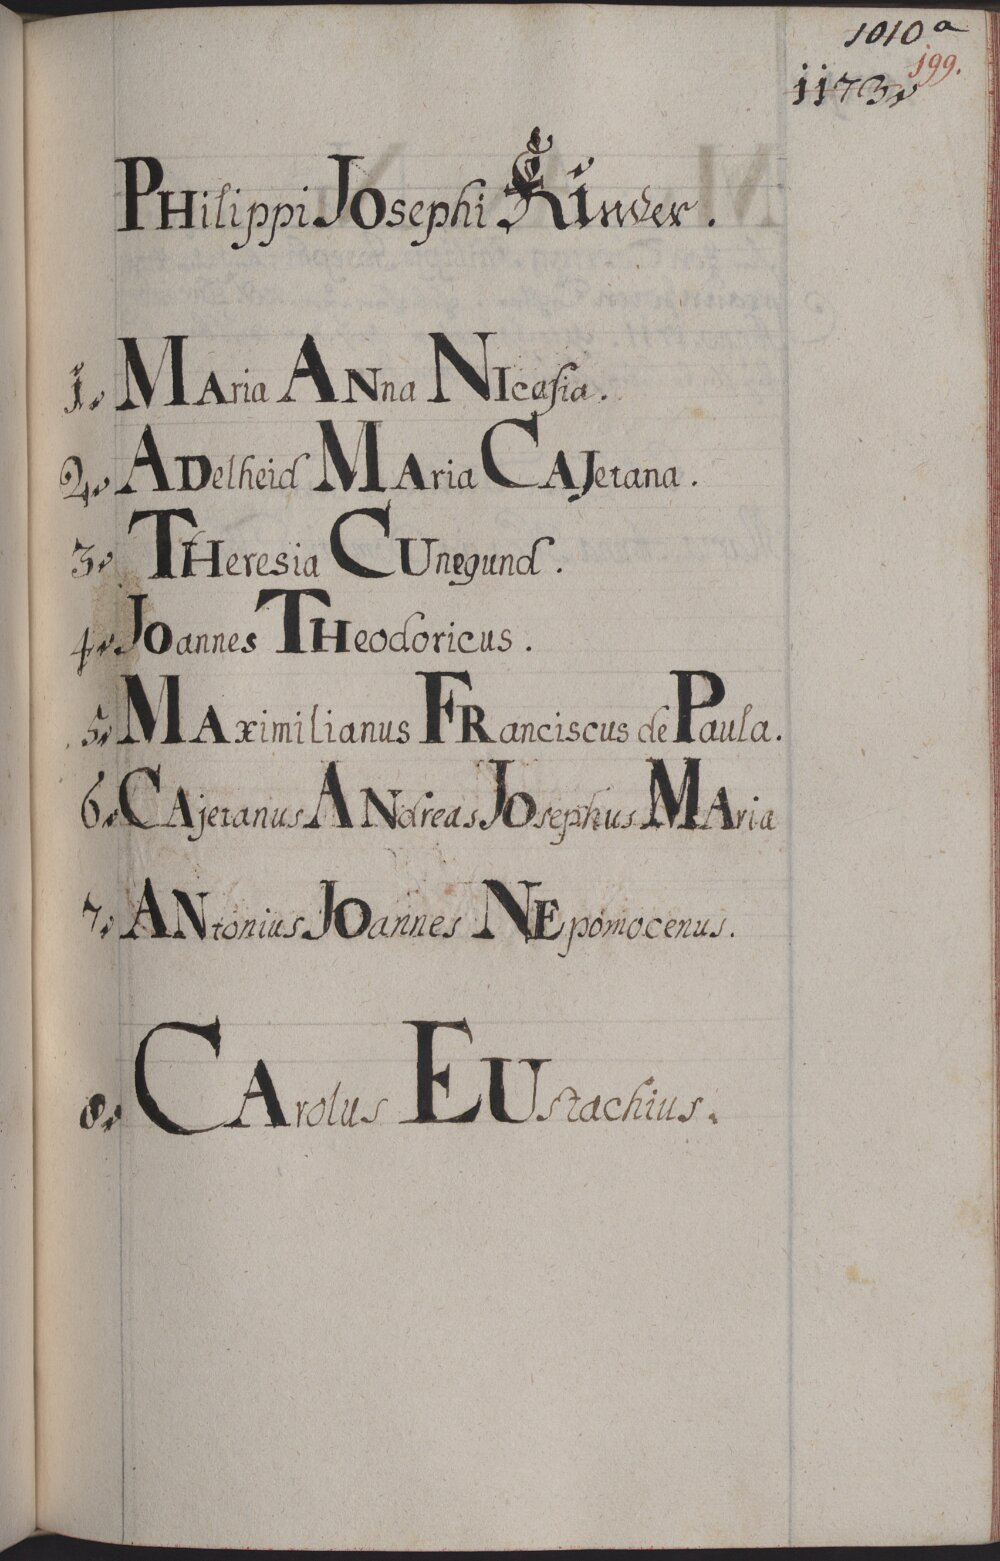 1010a
199.
1173.
PHilippi JOsephi Kinder.
1. MAria ANna NIcasia.
2. ADelheid MAria CAJetana.
3. THeresia CUnegund.
4. JOannes THeodoricus.
5. MAximilianus FRanciscus de Paula.
6. CAjetanus ANdreas JOsephus MAria
7. ANtonius JOannes NEpomocenus.
8. CArolus EUstachius.